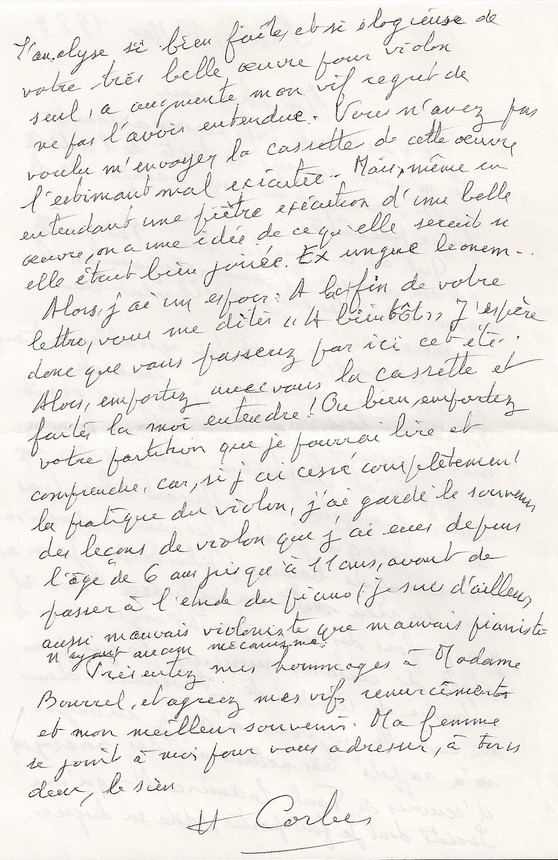 l'analyse si bien faite, et si élogieuse de
votre très belle œuvre pour violon
seul, a augmenté mon vif regret de
ne pas l'avoir entendue. Vous n'avez pas
voulu m'envoyer la cassette de cette œuvre
l'estimant mal exécutée.. Mais, même en
entendant une piètre exécution d'une belle
œuvre, on a une idée de ce qu'elle serait si
elle était bien jouée. Ex ungue leonem-.
Alors, j'ai un espoir: A la fin de votre
lettre, vous me dites "A bientôt" J'espère
donc que vous passerez par ici cet été.
Alors, emportez avec vous la cassette et
faites la moi entendre! Ou bien, emportez
votre partition que je pourrai lire et
comprendre, car, si j'ai cessé complètement
la pratique du violon, j'ai gardé le souvenir
des leçons de violon que j'ai eues depuis
l'âge de 6 ans jusqu'à 11 ans, avant de
passer à l'étude du piano (je suis d'ailleurs
aussi mauvais violoniste que mauvais pianiste
n'ayant aucun mécanisme.
Présentez mes hommages à Madame
Bourrel, et agréez mes vifs remerciements
et mon meilleur souvenir. Ma femme
se joint à moi pour vous adresser, à tous
deux, le sien
H Corbes